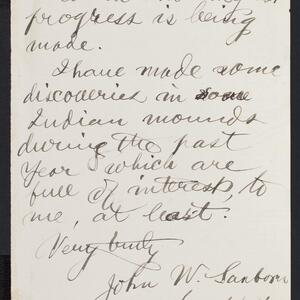 progress is being
made.
I have made some
discoveries in some
Indian mounds
during the past
year which are
full of interest, to
me, at least.
Very truly
John W. Sanborn